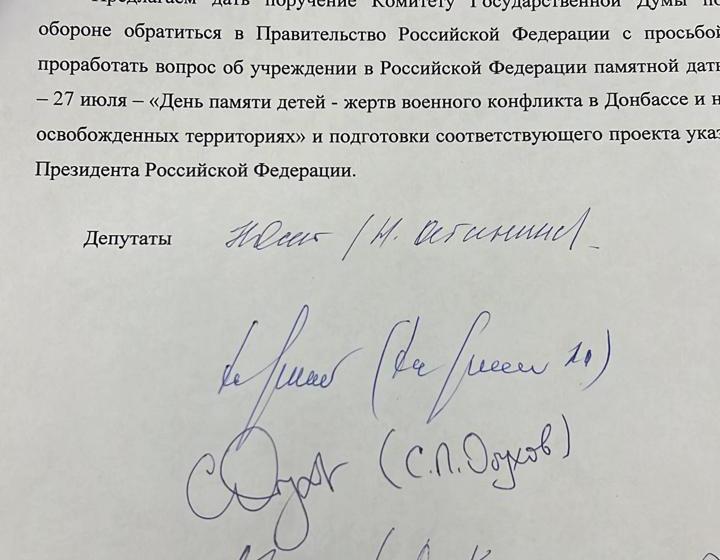 Предлагаем дать поручение Комитету Государственной Думы по
обороне обратиться в Правительство Российской Федерации с просьбой
проработать вопрос об учреждении в Российской Федерации памятной дат
– 27 июля – «День памяти детей - жертв военного конфликта в Донбассе и н
освобожденных территориях» и подготовки соответствующего проекта указ
Президента Российской Федерации.
Депутаты
Н. Останина
(С.П. Обухов)